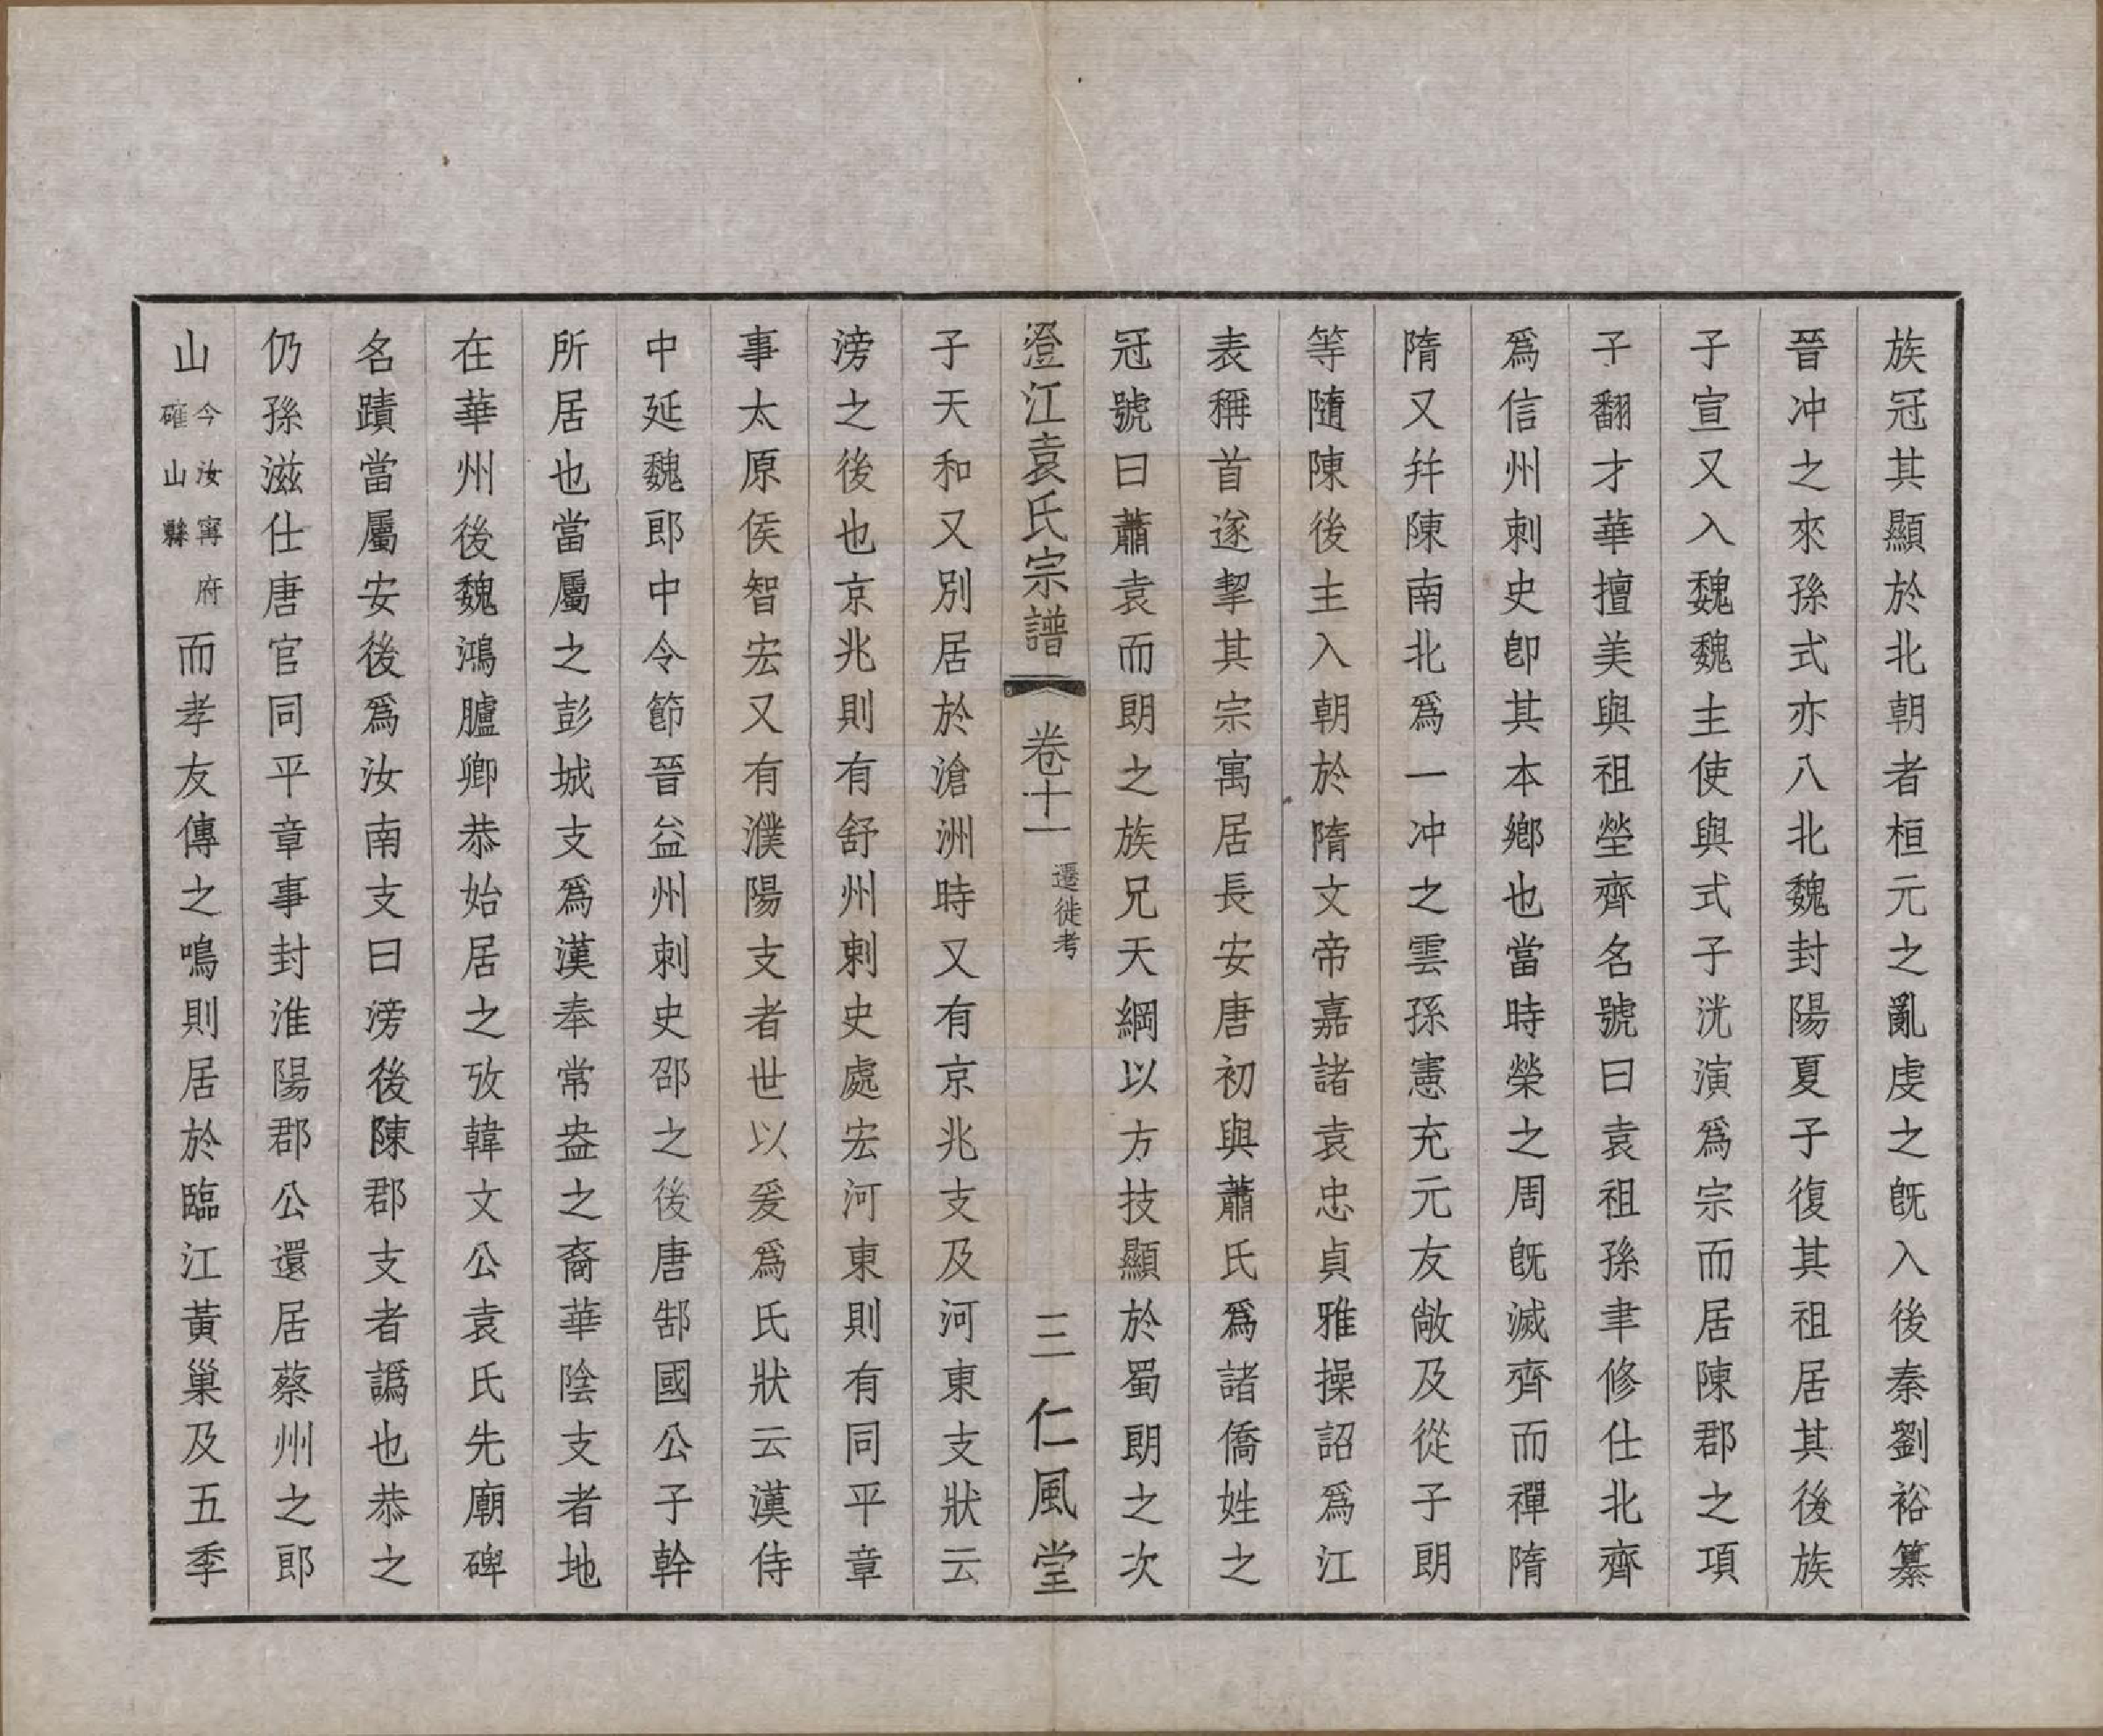 族冠其顯於北朝者桓元之亂虔之旣入後秦劉裕纂
晉冲之來孫式亦入北魏封陽夏子復其祖居其後族
子宣又入魏魏主使與式子洸演爲宗而居陳郡之項
子翻才華擅美與祖塋齊名號曰袁祖孫聿修仕北齊
爲信州刺史卽其本鄕也當時榮之周旣滅齊而禪隋
隋又幷陳南北爲一冲之雲孫憲充元友敞及從子朗
等隨陳後主入朝於隋文帝嘉諸袁忠貞雅操詔爲江
表稱首遂挈其宗寓居長安唐初與蕭氏爲諸僑姓之
冠號曰蕭袁而朗之族兄天綱以方技顯於蜀朗之次
澄江袁氏宗譜 卷十一 遷徙考 三 仁風堂
子天和又別居於滄洲時又有京兆支及河東支狀云
滂之後也京兆則有舒州刺史處宏河東則有同平章
事太原侯智宏又有濮陽支者世以爰爲氏狀云漢侍
中延魏郎中令節晉益州刺史邵之後唐郜國公子幹
所居也當屬之彭城支爲漢奉常盎之裔華陰支者地
在華州後魏鴻臚卿恭始居之攷韓文公袁氏先廟碑
名蹟當屬安後爲汝南支曰滂後陳郡支者譌也恭之
仍孫滋仕唐官同平章事封淮陽郡公還居蔡州之郎
山今汝甯府確山縣而孝友傳之鳴則居於臨江黃巢及五季